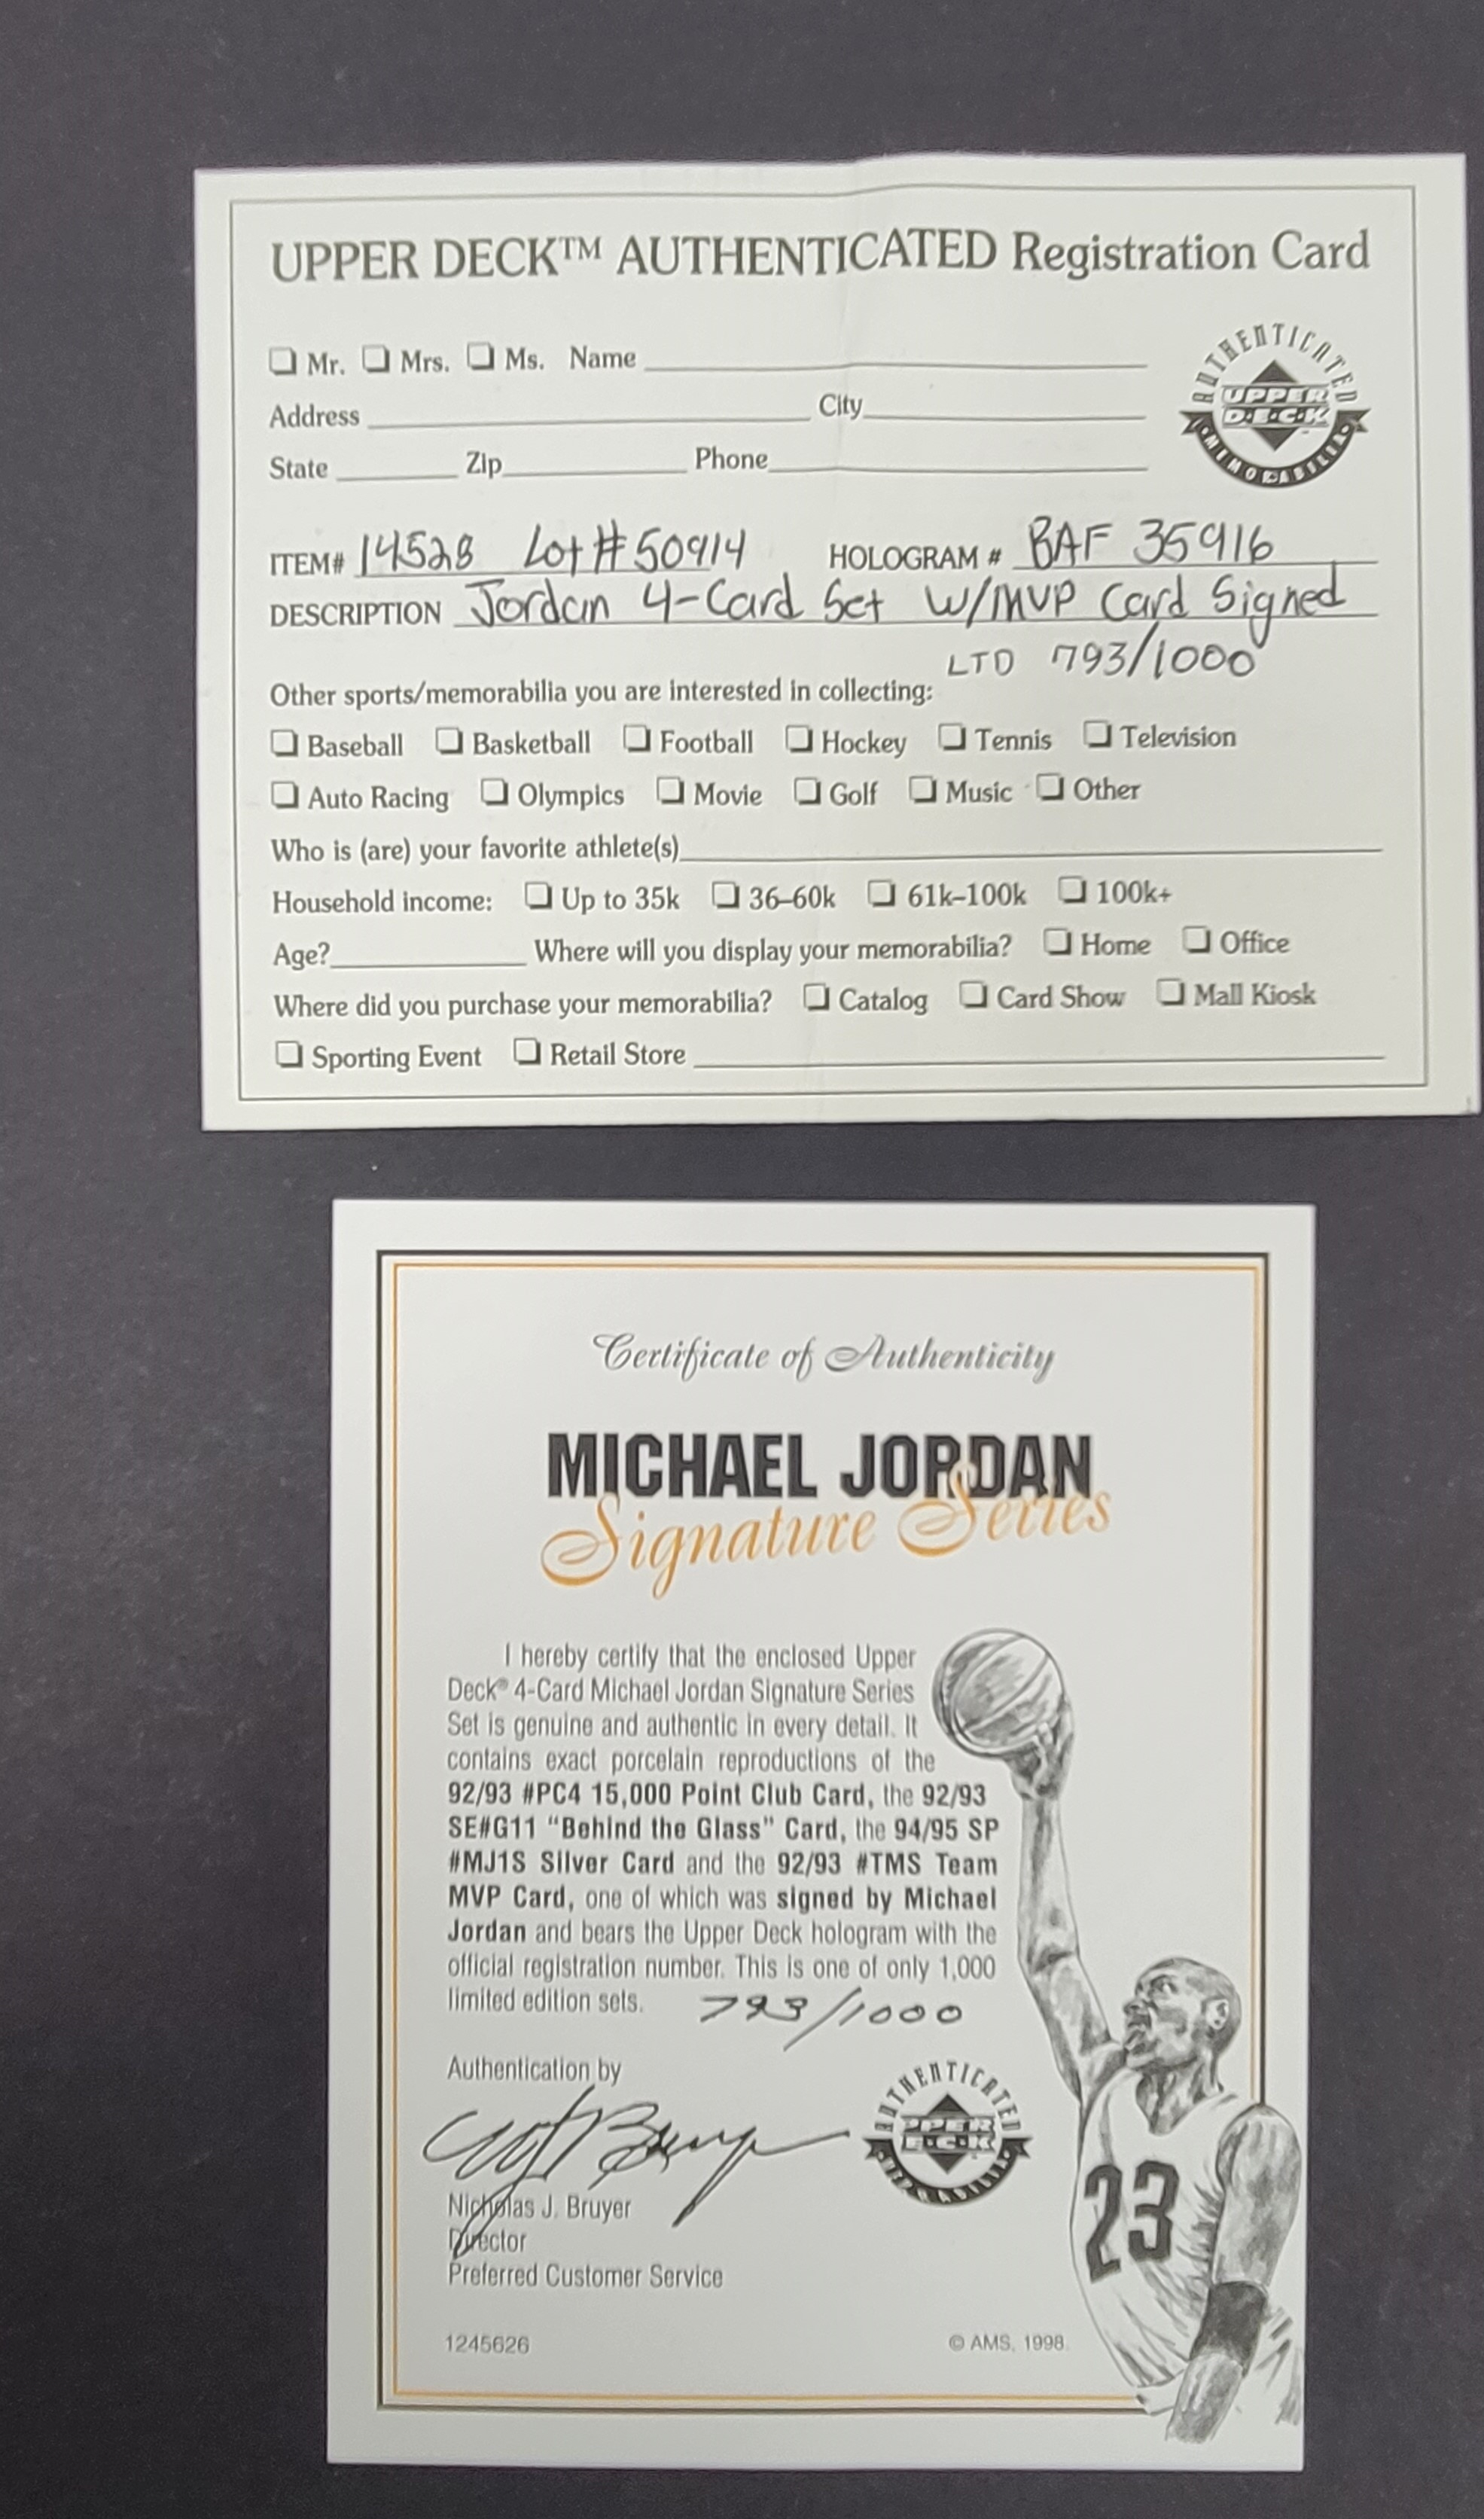 UPPER DECK™ AUTHENTICATED Registration Card
❏ Mr. ❏ Mrs. ❏ Ms. Name
AUTHENTICATED
UPPER
D·E·C·K
MEMORABILIA
Address City
State Zip Phone
ITEM# 14528 Lot # 50914 HOLOGRAM # BAF 35916
DESCRIPTION Jordan 4-Card Set W/MVP Card Signed
LTD 793/1000
Other sports/memorabilia you are interested in collecting:
❏ Baseball ❏ Basketball ❏ Football ❏ Hockey ❏ Tennis ❏ Television
❏ Auto Racing ❏ Olympics ❏ Movie ❏ Golf ❏ Music ❏ Other
Who is (are) your favorite athlete(s)
Household income: ❏ Up to 35k ❏ 36–60k ❏ 61k–100k ❏ 100k+
Age? Where will you display your memorabilia? ❏ Home ❏ Office
Where did you purchase your memorabilia? ❏ Catalog ❏ Card Show ❏ Mall Kiosk
❏ Sporting Event ❏ Retail Store
Certificate of Authenticity
MICHAEL JORDAN
Signature Series
I hereby certify that the enclosed Upper
Deck® 4-Card Michael Jordan Signature Series
Set is genuine and authentic in every detail. It
contains exact porcelain reproductions of the
92/93 #PC4 15,000 Point Club Card, the 92/93
SE#G11 “Behind the Glass” Card, the 94/95 SP
#MJ1S Silver Card and the 92/93 #TMS Team
MVP Card, one of which was signed by Michael
Jordan and bears the Upper Deck hologram with the
official registration number. This is one of only 1,000
limited edition sets. 793/1000
Authentication by
AUTHENTICATED
Nicholas J. Bruyer
Director
Preferred Customer Service
23
1245626 © AMS, 1998